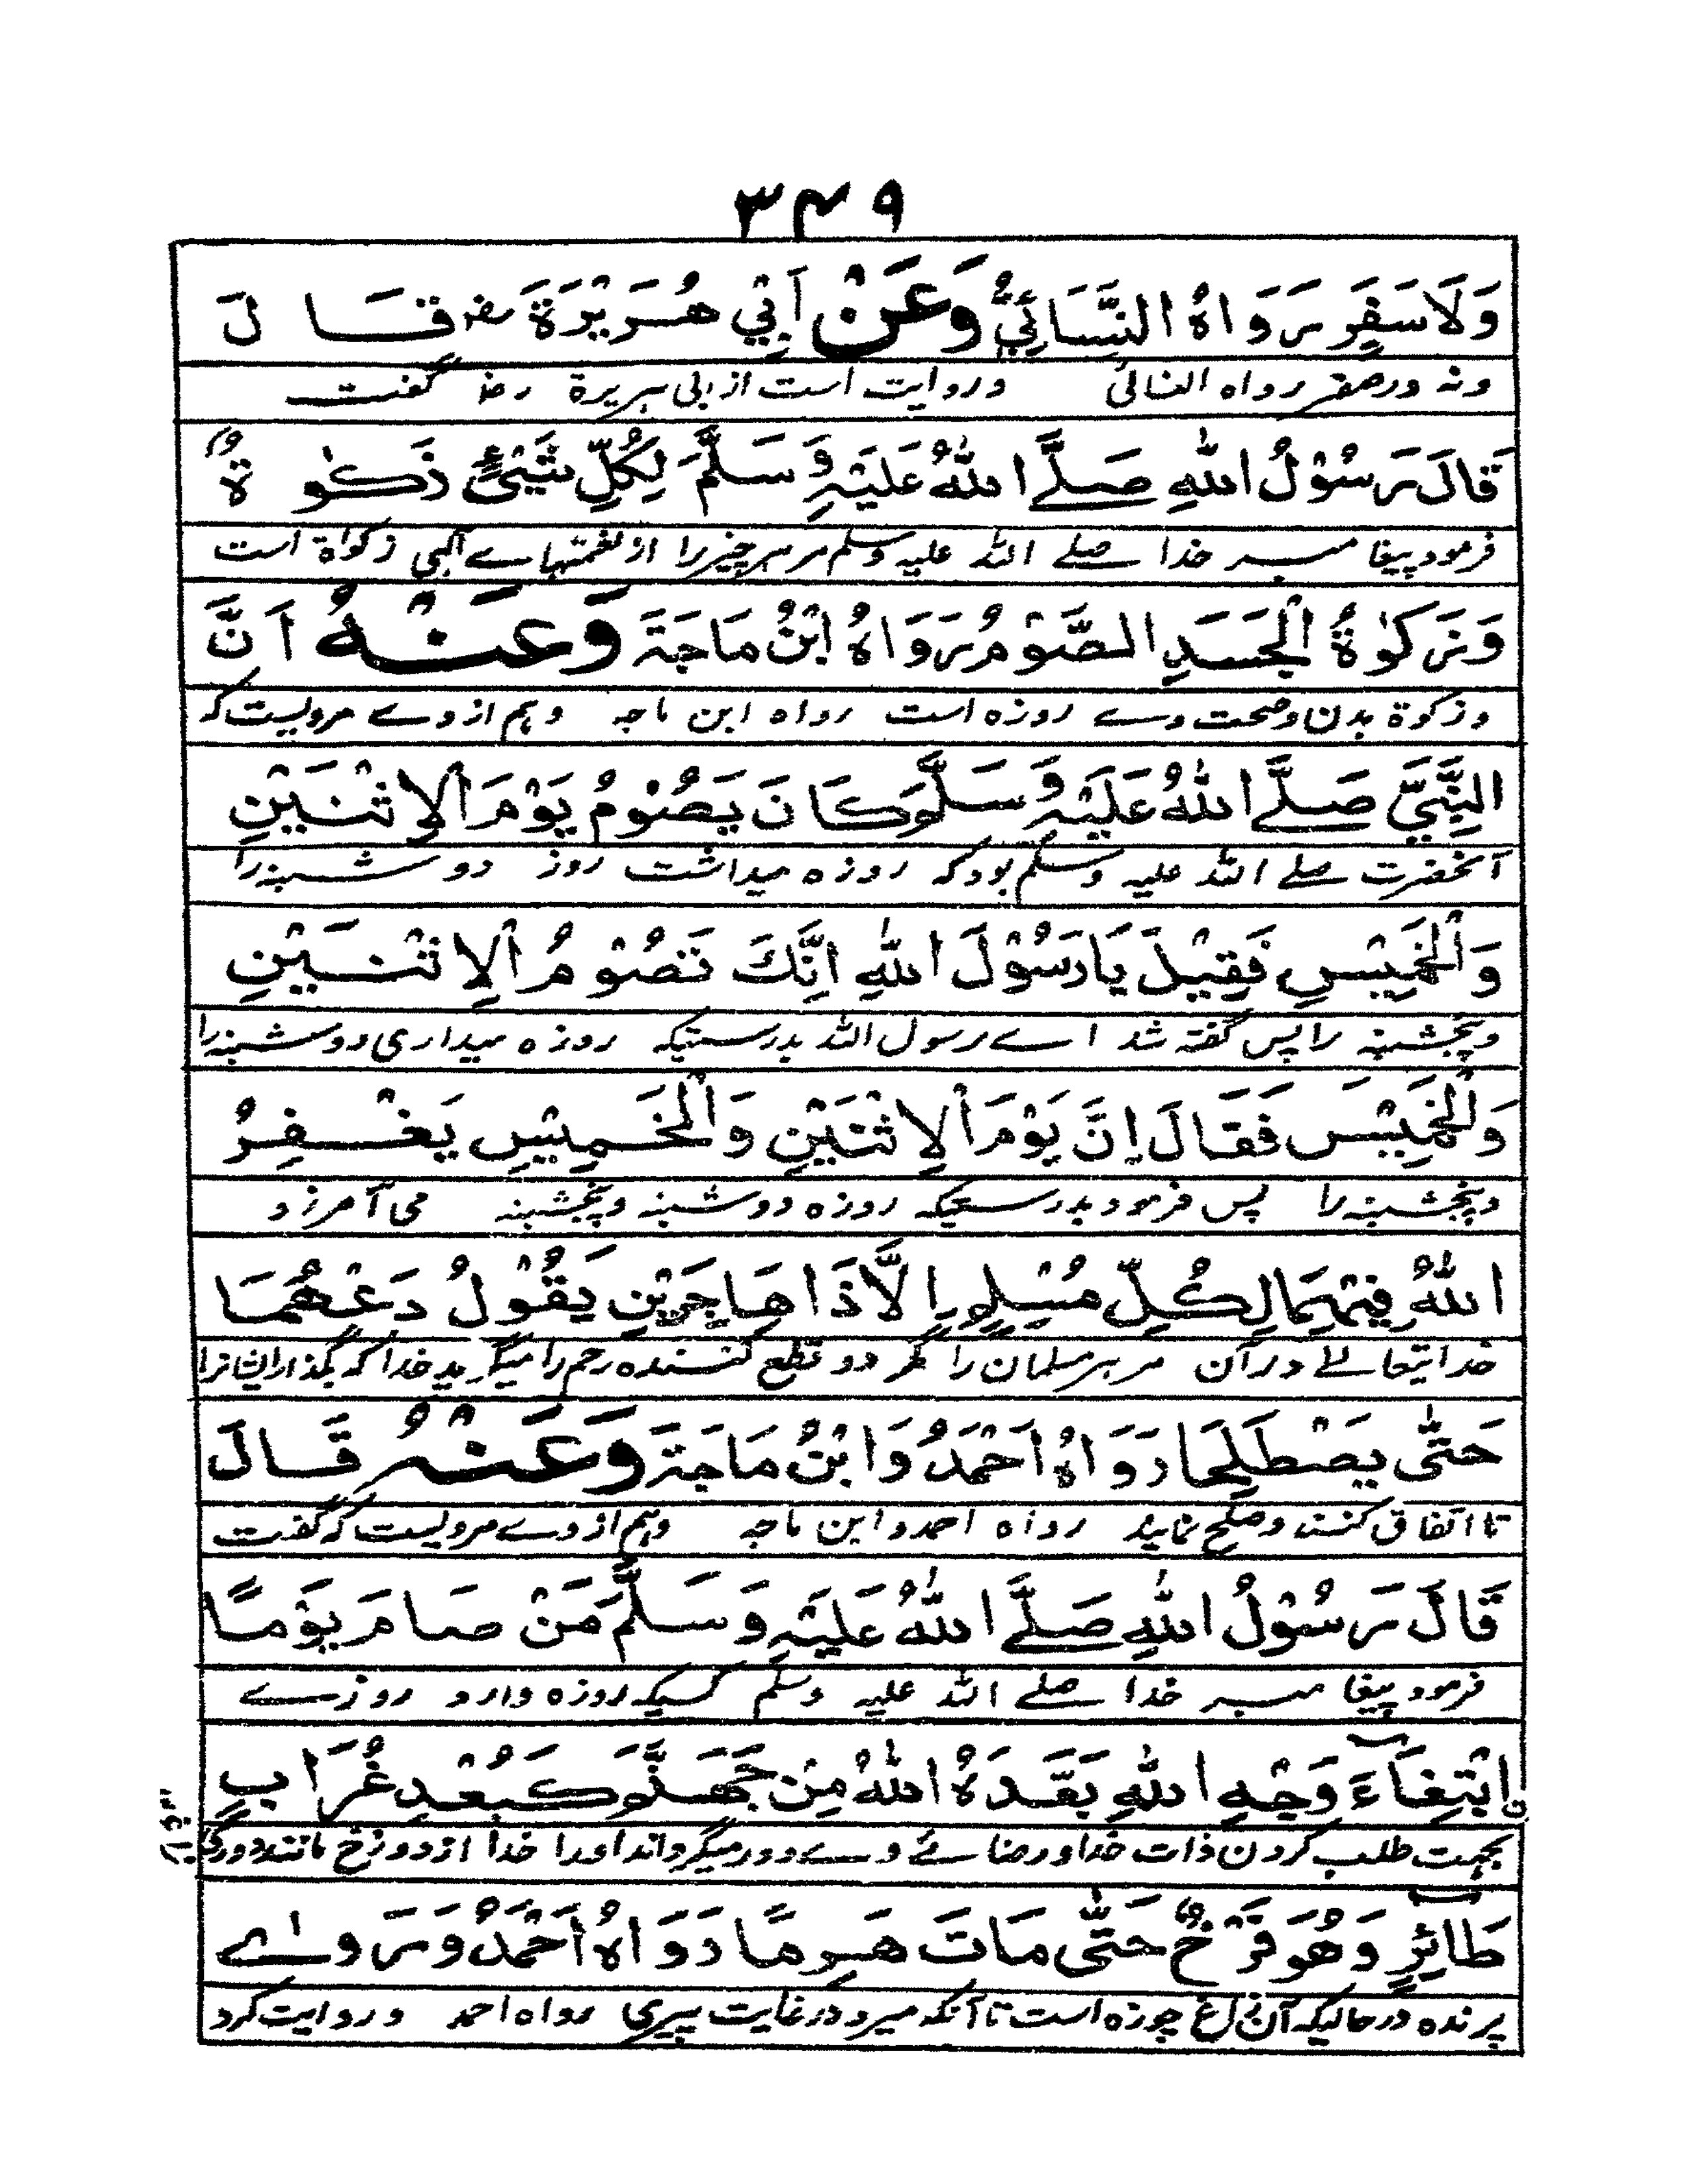 ۳۴۹
وَلَا سَفَرٍ رَوَاهُ النَّسَائِيُّ وَعَنْ اَبِي هُرَيْرَةَ رضـ قَالَ
ونه در سفر رواه النسائی وروایت است از ابی ہریرة رضـ گفت
قَالَ رَسُوْلُ اللهِ صَلَّے اللهُ عَلَيْهِ وَسَلَّمَ لِكُلِّ شَيْئٍ زَكٰوةٌ
فرمود پیغامبر خدا صلے اللہ علیہ وسلم مر ہر چیز را از نعمتہاے آلہی زکواة است
وَزَكٰوةُ الْجَسَدِ الصَّوْمُ رَوَاهُ ابْنُ مَاجَةَ وَعَنْهُ اَنَّ
وزکوة بدن وصحت وے روزه است رواه ابن ماجہ وہم از وے مرویست کہ
النَّبِيَّ صَلَّے اللهُ عَلَيْهِ وَسَلَّمَ كَانَ يَصُوْمُ يَوْمَ الْاِثْنَيْنِ
آنحضرت صلے اللہ علیہ وسلم بود کہ روزه میداشت روز دوشنبہ را
وَالْخَمِيْسِ فَقِيْلَ يَا رَسُوْلَ اللهِ اِنَّكَ تَصُوْمُ الْاِثْنَيْنِ
وپنجشنبہ را پس گفتہ شد اے رسول اللہ بدرستیکہ روزه میداری دوشنبہ را
وَالْخَمِيْسَ فَقَالَ اِنَّ يَوْمَ الْاِثْنَيْنِ وَالْخَمِيْسِ يَغْفِرُ
وپنجشنبہ را پس فرمود بدرستیکہ روزه دوشنبہ وپنجشنبہ می آمرزد
اللهُ فِيْهِمَا لِكُلِّ مُسْلِمٍ اِلَّا ذَا هَاجِرَيْنِ يَقُوْلُ دَعْهُمَا
خدایتعالےٰ در آن مر ہر مسلمان را مگر دو قطع کنندہ رحم را میگوید خدا کہ بگذار ایشانرا
حَتّٰى يَصْطَلِحَا رَوَاهُ اَحْمَدُ وَابْنُ مَاجَةَ وَعَنْهُ قَالَ
تا اتفاق کنند وصلح نمایند رواه احمد وابن ماجہ وہم از وے مرویست کہ گفت
قَالَ رَسُوْلُ اللهِ صَلَّے اللهُ عَلَيْهِ وَسَلَّمَ مَنْ صَامَ يَوْمًا
فرمود پیغامبر خدا صلے اللہ علیہ وسلم کسیکہ روزه دارد روزے
ابْتِغَاءَ وَجْهِ اللهِ بَعَّدَهُ اللهُ مِنْ جَهَنَّمَ كَبُعْدِ غُرَابٍ
بجہت طلب کردن ذات خدا ورضائے وے دور میگرداند اورا خدا از دوزخ مانند دوری
طَائِرٍ وَهُوَ فَرْخٌ حَتّٰى مَاتَ هَرِمًا رَوَاهُ اَحْمَدُ وَرَوٰے
پرنده در حالیکہ آن زاغ چوزه است تا آنکہ میرد در غایت پیری رواه احمد وروایت کرد